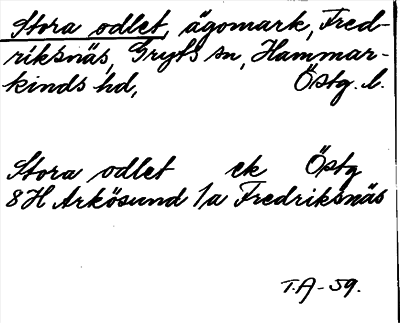 Stora odlet, ägomark, Fred-
riksnäs, Gryts sn, Hammar-
kinds hd, Östg. l.
Stora odlet ek Östg
8H Arkösund 1a Fredriksnäs
T.A-59.